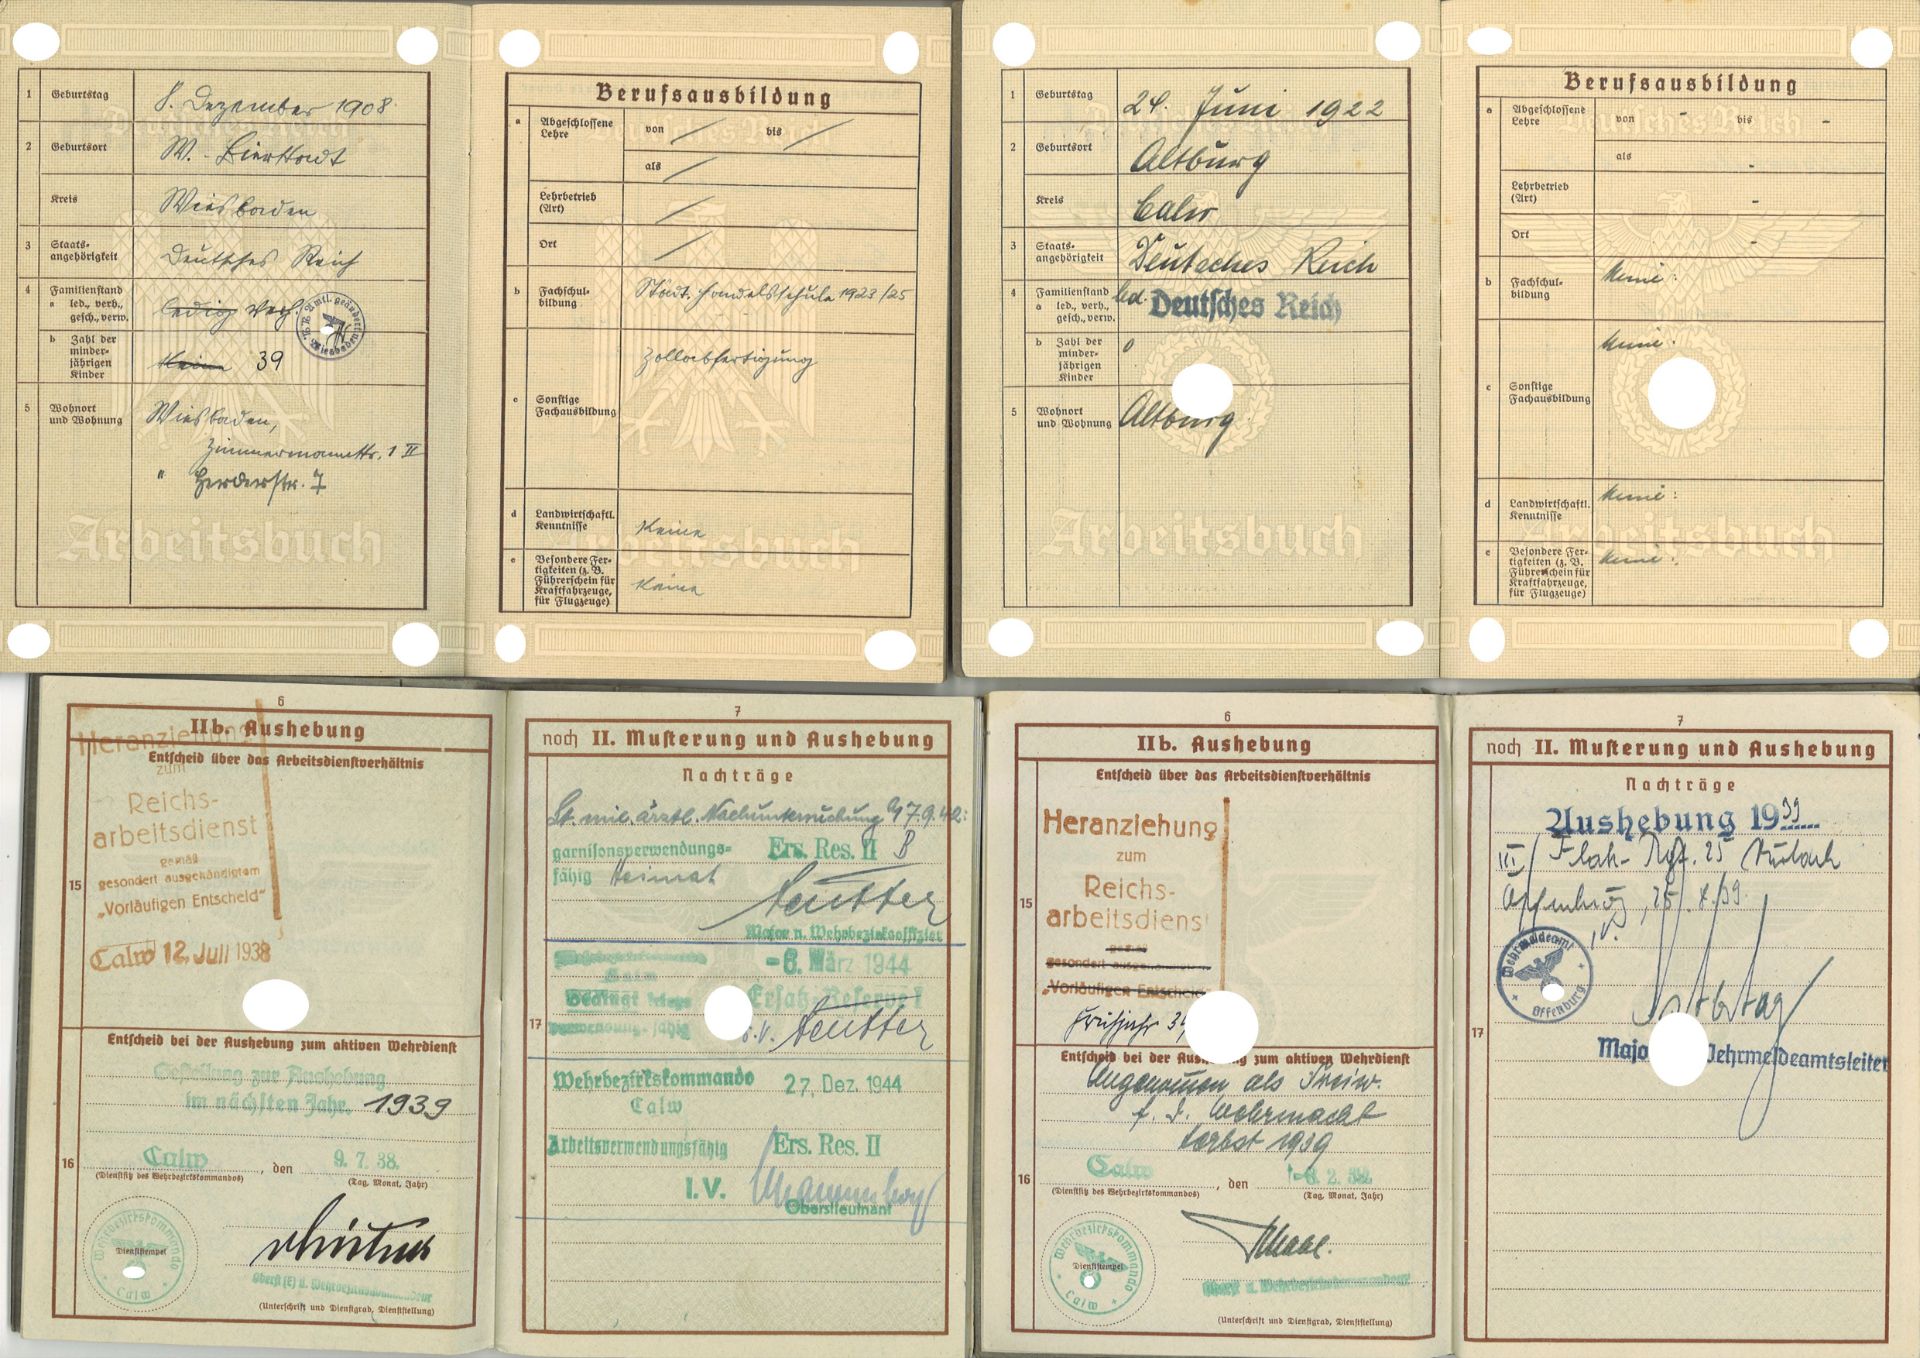 1 Geburtstag 8. Dezember 1908.
2 Geburtsort W.-Bierstadt
Kreis Wiesbaden
3 Staats-
angehörigkeit Deutsches Reich
4 Familienstand
a led., verh., ledig verh.
gesch., verw.
b Zahl der
minder-
jährigen keine 39
Kinder
5 Wohnort Wiesbaden,
und Wohnung
Zimmermannstr. 1 II
" Herderstr. 7
Arbeitsbuch
Berufsausbildung
a Abgeschlossene
Lehre
von / bis /
als /
Lehrbetrieb
(Art) /
Ort /
b Fachschul-
bildung Städt. Handelsschule 1923/25
Zollabfertigung
c Sonstige
Fachausbildung
d Landwirtschaftl.
Kenntnisse Keine
e Besondere Fer-
tigkeiten (z. B.
Führerschein für
Kraftfahrzeuge,
für Flugzeuge) Keine
Arbeitsbuch
1 Geburtstag 24. Juni 1922
2 Geburtsort Altburg
Kreis Calw
3 Staats-
angehörigkeit Deutsches Reich
4 Familienstand led. Deutsches Reich
a led., verh.,
gesch., verw.
b Zahl der 0
minder-
jährigen
Kinder
5 Wohnort
und Wohnung Altburg.
Arbeitsbuch
Berufsausbildung
Deutsches Reich
a Abgeschlossene
Lehre
von - bis -
als -
Lehrbetrieb
(Art) -
Ort -
b Fachschul-
bildung keine.
keine.
c Sonstige
Fachausbildung
d Landwirtschaftl. keine.
Kenntnisse
e Besondere Fer- keine.
tigkeiten (z. B.
Führerschein für
Kraftfahrzeuge,
für Flugzeuge)
Arbeitsbuch
6
IIb. Aushebung
Entscheid über das Arbeitsdienstverhältnis
Heranziehung
zum
Reichs-
arbeitsdienst
gemäß
15 gesondert ausgehändigtem
„Vorläufigen Entscheid“
Calw 12. Juli 1938
Entscheid bei der Aushebung zum aktiven Wehrdienst
Gestellung zur Aushebung
im nächsten Jahr. 1939
16 Calw, den 9. 7. 38.
(Dienstsitz des Wehrbezirkskommandos) (Tag, Monat, Jahr)
Wehrbezirkskommando
Dienststempel
Calw
Oberst (E) u. Wehrbezirkskommandeur
(Unterschrift und Dienstgrad, Dienststellung)
7
noch II. Musterung und Aushebung
Nachträge
ärztl. Nachuntersuchung
garnisonsverwendungs- Ers. Res. II B
fähig Heimat
Major u. Wehrbezirksoffizier
- 6. März 1944
Calw
Bedingt kriegs Ersatz-Reserve I
verwendungsfähig
17 i.V.
Wehrbezirkskommando 27. Dez. 1944
Calw
Arbeitsverwendungsfähig Ers. Res. II
I.V.
Oberstleutnant
6
IIb. Aushebung
Entscheid über das Arbeitsdienstverhältnis
Heranziehung
zum
Reichs-
15 arbeitsdienst
gemäß
gesondert ausgehändigtem
„Vorläufigen Entscheid“
Frühjahr 39
Entscheid bei der Aushebung zum aktiven Wehrdienst
Angenommen als Freiw.
f. d. Wehrmacht
Herbst 1939
16 Calw, den
(Dienstsitz des Wehrbezirkskommandos) (Tag, Monat, Jahr)
Wehrbezirkskommando
Dienststempel
Calw
Oberst u. Wehrbezirkskommandeur
(Unterschrift und Dienstgrad, Dienststellung)
7
noch II. Musterung und Aushebung
Nachträge
Aushebung 1939
III/ Flak-Rgt. 25
Wehrmeldeamt
Offenburg
17
Major Wehrmeldeamtsleiter